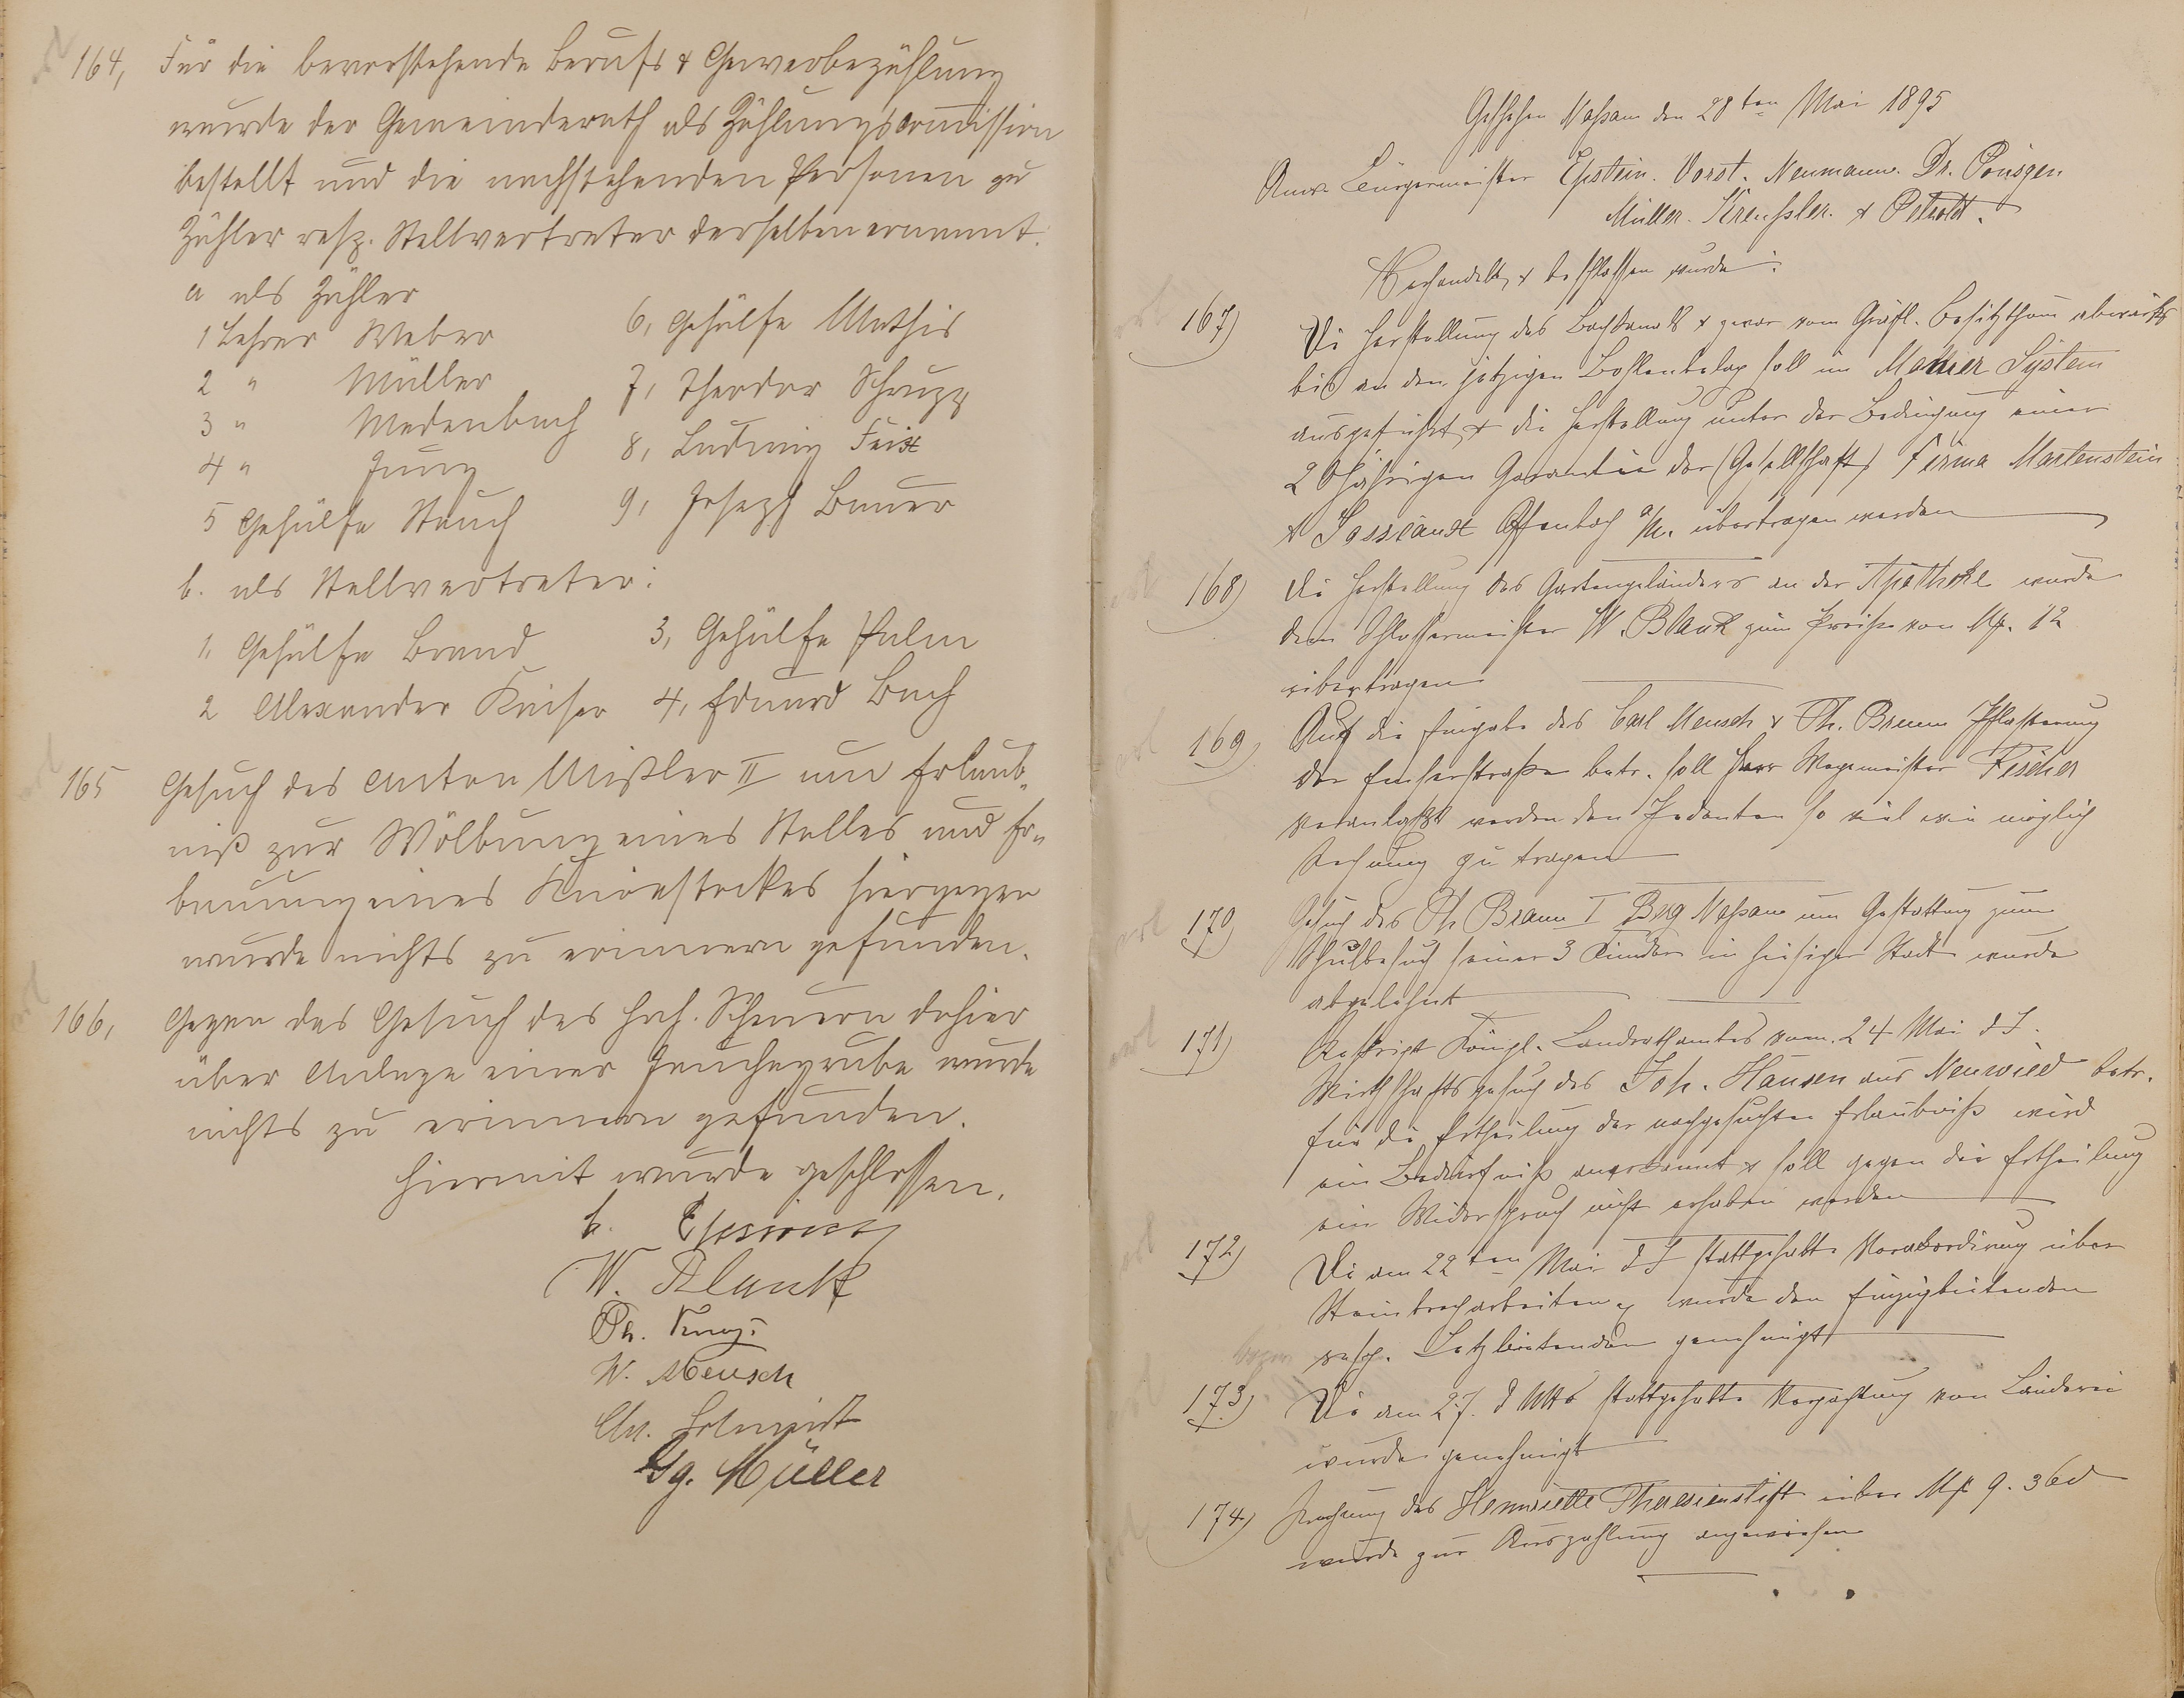 164, Für die bevorstehende Berufs & Gewerbezählung
wurde der Gemeinderath als Zählungscommission
bestellt und die nachstehenden Personen zu
Zähler resp. Stellvertreter derselben ernannt.
a als Zähler
1 Lehrer Weber
2 " Müller
3 " Medenbach
4 " Jung
5 Gehülfe Stauch
6, Gehülfe Mathis
7, Theodor Schrupp
8, Ludwig Feix
9, Joseph Bauer
b. als Stellvertreter:
1, Gehülfe Brand
2 Alexander Kaiser
3, Gehülfe Palm
4, Eduard Bach
165 Gesuch des Anton Mißler II um Erlaub„
niß zur Wölbung eines Stalles und Er„
bauung eines Kniestockes hiergegen
wurde nichts zu erinnern gefunden.
166, Gegen das Gesuch des Hch. Scheuern dahier
über Anlage einer Jauchegrube wurde
nichts zu erinnern gefunden.
Hiermit wurde geschlossen.
W. Blank
Ph.
W. Mensch
Chr. Schmidt
Gg. Müller
Geschehen Naßau den 28ten Mai 1895
Anw. Bürgermeister Epstein. Vorst. Neumann. Dr. Poensgen
Müller. & Petzoldt.
Verhandelt & beschlossen wurde:
167) Die Herstellung des Bachkanals & zwar vom Gräfl. Besitzthum abwärts
bis an den jetzigen Bohlenbelag soll im Monier System
ausgeführt & die Herstellung unter der Bedingung einer
20jährigen Garantie der (Gesellschaft) Firma Martenstein
& Josseaux Offenbach a/M. übertragen werden
168) Die Herstellung des Gartengeländers an der Apotheke wurde
dem Schlossermeister W. Blank zum Preise von Mk. 12
übertragen
169) Auf die Eingabe des Carl Mensch & Ph. Braun Pflasterung
der Emserstraße betr. soll Herr Wegemeister Fischer
veranlaßt werden den Petenten so viel wie möglich
Rechnung zu tragen
170) Gesuch des Ph Braun I Brg Naßau um Gestattung zum
Schulbesuch seiner 3 Kinder in hiesiger Stadt wurde
abgelehnt
171) Rescript Königl. Landrathamtes vom 24 Mai d J.
Wirthschaftsgesuch des Joh. Hausen aus Neuwied betr.
für die Ertheilung der nachgesuchten Erlaubniß wird
ein Bedürfniß anerkannt & soll gegen die Ertheilung
ein Widerspruch nicht erhoben werden
172) Die am 22ten Mai d J stattgehabte Verakkordirung über
Steinbrecharbeiten wurde den Einzigbietenden
resp. Letzbietenden genehmigt
173) Die am 27. d Mts stattgehabte Verpachtung von Länderei
wurde genehmigt
174) Rechnung des Henriette Theresienstift über Mk 9.36 d
wurde zur Auszahlung angewiesen